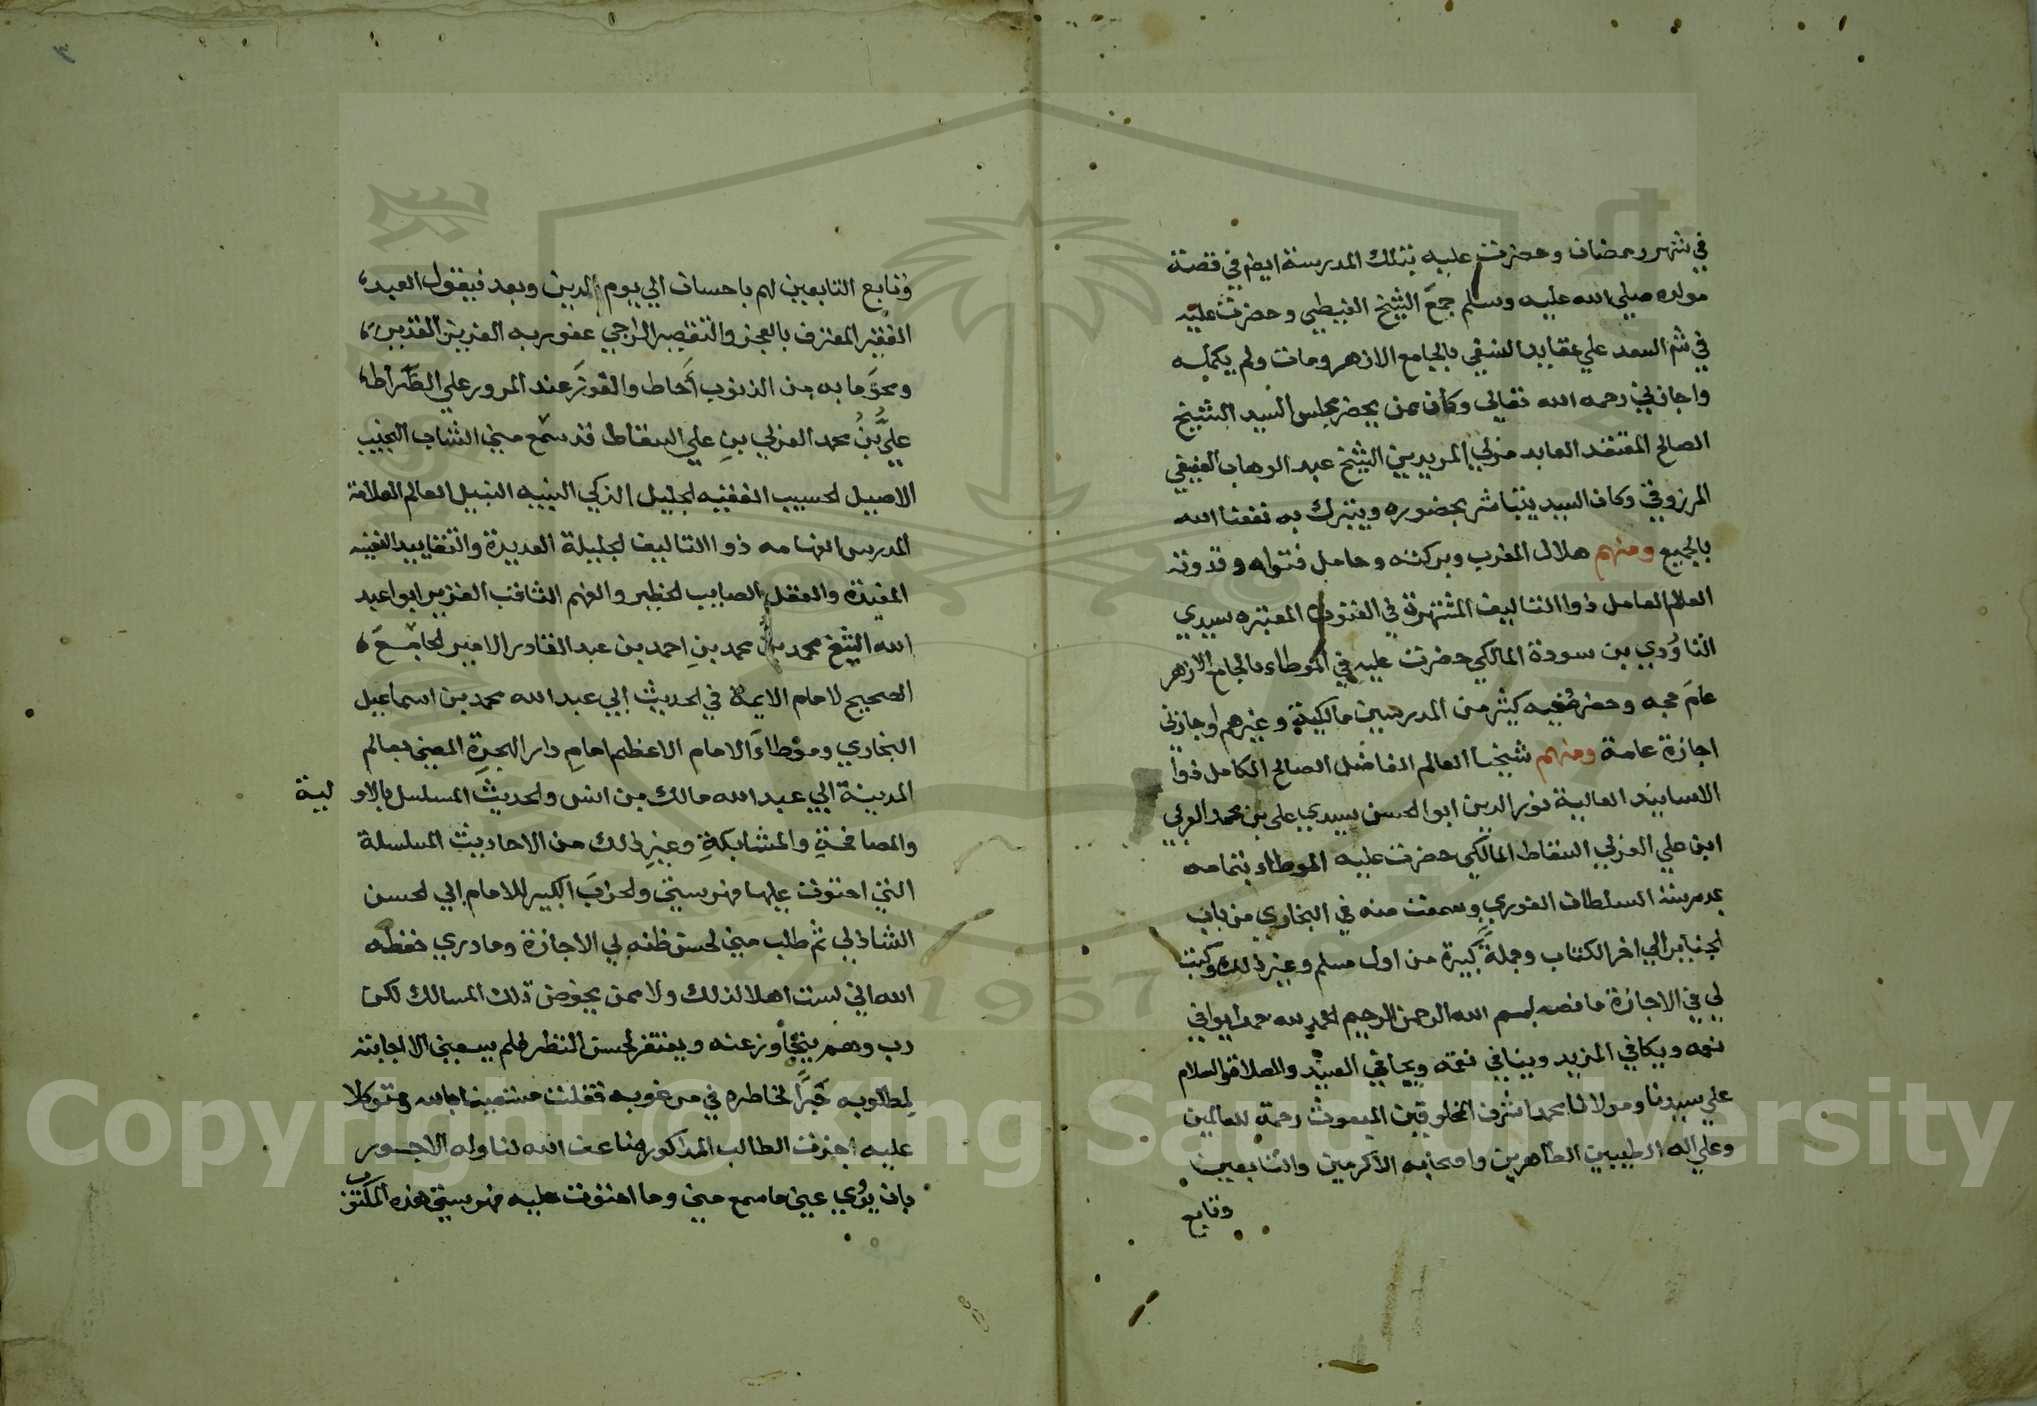 في شهر رمضان وحضرت عليه بتلك المدرسة ايضا في قصة
مولده صلي الله عليه وسلم جمع الشيخ الغيطي وحضرت عليه
في شرح السعد علي عقايد النسفي بالجامع الازهر ومات ولم يكمله
واجازني رحمه الله تعالي وكان ممن يحضر مجلس السيد الشيخ
الصالح المعتقد العابد مربي المريدين الشيخ عبد الوهاب العفيفي
المرزوقي وكان السيد يتباشر بحضوره ويتبرك به نفعنا الله
بالجميع ومنهم هلال المغرب وبركته وحامل فتواه وقدوته
العالم العامل ذوا التاليف المشتهرة في الفنون المعتبره سيدي
التاودي بن سودة المالكي حضرت عليه في الموطاء بالجامع الازهر
عام حجه وحضر معيه كثير من المدرسين مالكية وغيرهم واجازني
اجازة عامة ومنهم شيخنا العالم الفاضل الصالح الكامل ذوا
الاسانيد العالية نور الدين ابو الحسن سيدي علي بن محمد العربي
ابن علي العربي السقاط المالكي حضرت عليه الموطاء بتمامه
بمدرسة السلطان الغوري وسمعت منه في البخاري من باب
الجنايز الي اخر الكتاب وجملة كبيرة من اول مسلم وغير ذلك وكتب
لي في الاجازة ما نصه بسم الله الرحمن الرحيم الحمد لله حمدا يوافي
نعمه ويكافي المزيد وينافي نقمه ويجافي العبيد والصلاة والسلام
علي سيدنا ومولانا محمد اشرف المخلوقين المبعوث رحمة للعالمين
وعلي اله الطيبين الطاهرين واصحابه الاكرمين والتابعين
وتابع
٣
وتابع التابعين لهم باحسان الي يوم الدين وبعد فيقول العبد
الفقير المعترف بالعجز والتقصير الراجي عفو ربه العزيز القدير
ومحو ما به من الذنوب أحاط والفوز عند المرور علي الصراط
علي بن محمد العربي بن علي السقاط قد سمع مني الشاب النجيب
الاصيل الحسيب الفقيه الجليل الزكي النبيه النبيل العالم العلامة
المدرس الفهامه ذوا التاليف الجليلة العديدة والتقاييد
المفيدة والعقل الصايب الخطير والفهم الثاقب الغزير ابوا عبد
الله الشيخ محمد بن محمد بن احمد بن عبد القادر الامير الجامع
الصحيح لامام الايمة في الحديث ابي عبد الله محمد بن اسماعيل
البخاري وموطاء الامام الاعظم امام دار الهجرة المعني بعالم
المدينة ابي عبد الله مالك بن انس والحديث المسلسل بالاو لية
والمصافحة والمشابكة وغير ذلك من الاحاديث المسلسلة
التي احتوت عليها فهرستي والحزب الكبير للامام ابي الحسن
الشاذلي ثم طلب مني لحسن ظنه بي الاجازة وما دري حفظه
الله اني لست اهلا لذلك ولا ممن يخوض تلك المسالك لكن
رب وهم ويغتفر لحسن النظر فلم يسعني الا اجابته
لمطلوبه جبرا لخاطره في مرغوبه فقلت مستعينا بالله ومتوكلا
عليه اجزت الطالب المذكور ضاعف الله لنا وله الاجور
بان يروي عني ما سمع مني وما احتوت عليه فهرستي هذه